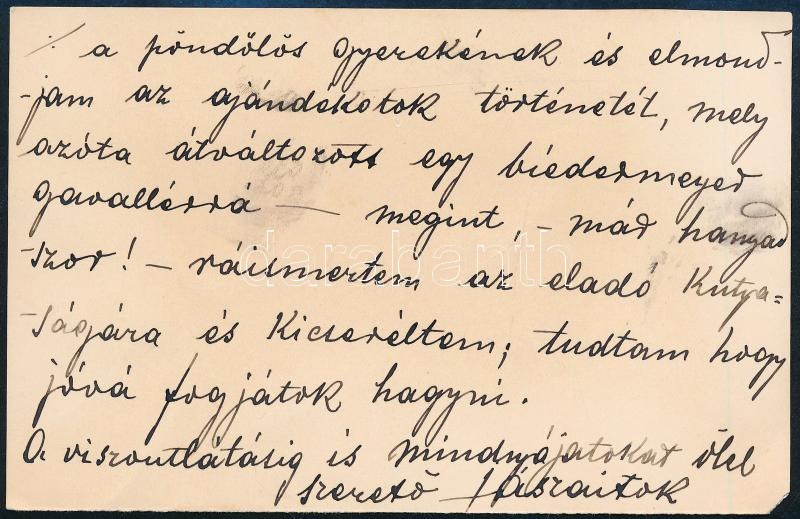 ·/· a pöndölös gyerekének és elmond-
-jam az ajándékotok történetét, mely
azóta átváltozott egy biedermeyer
gavallérrá — megint, - már hanyad
-szor! - ráismertem az eladó kutya-
-ságára és kicseréltem; tudtam hogy
jóvá fogjátok hagyni.
A viszontlátásig is mindnyájatokat ölel
szerető
darabanth